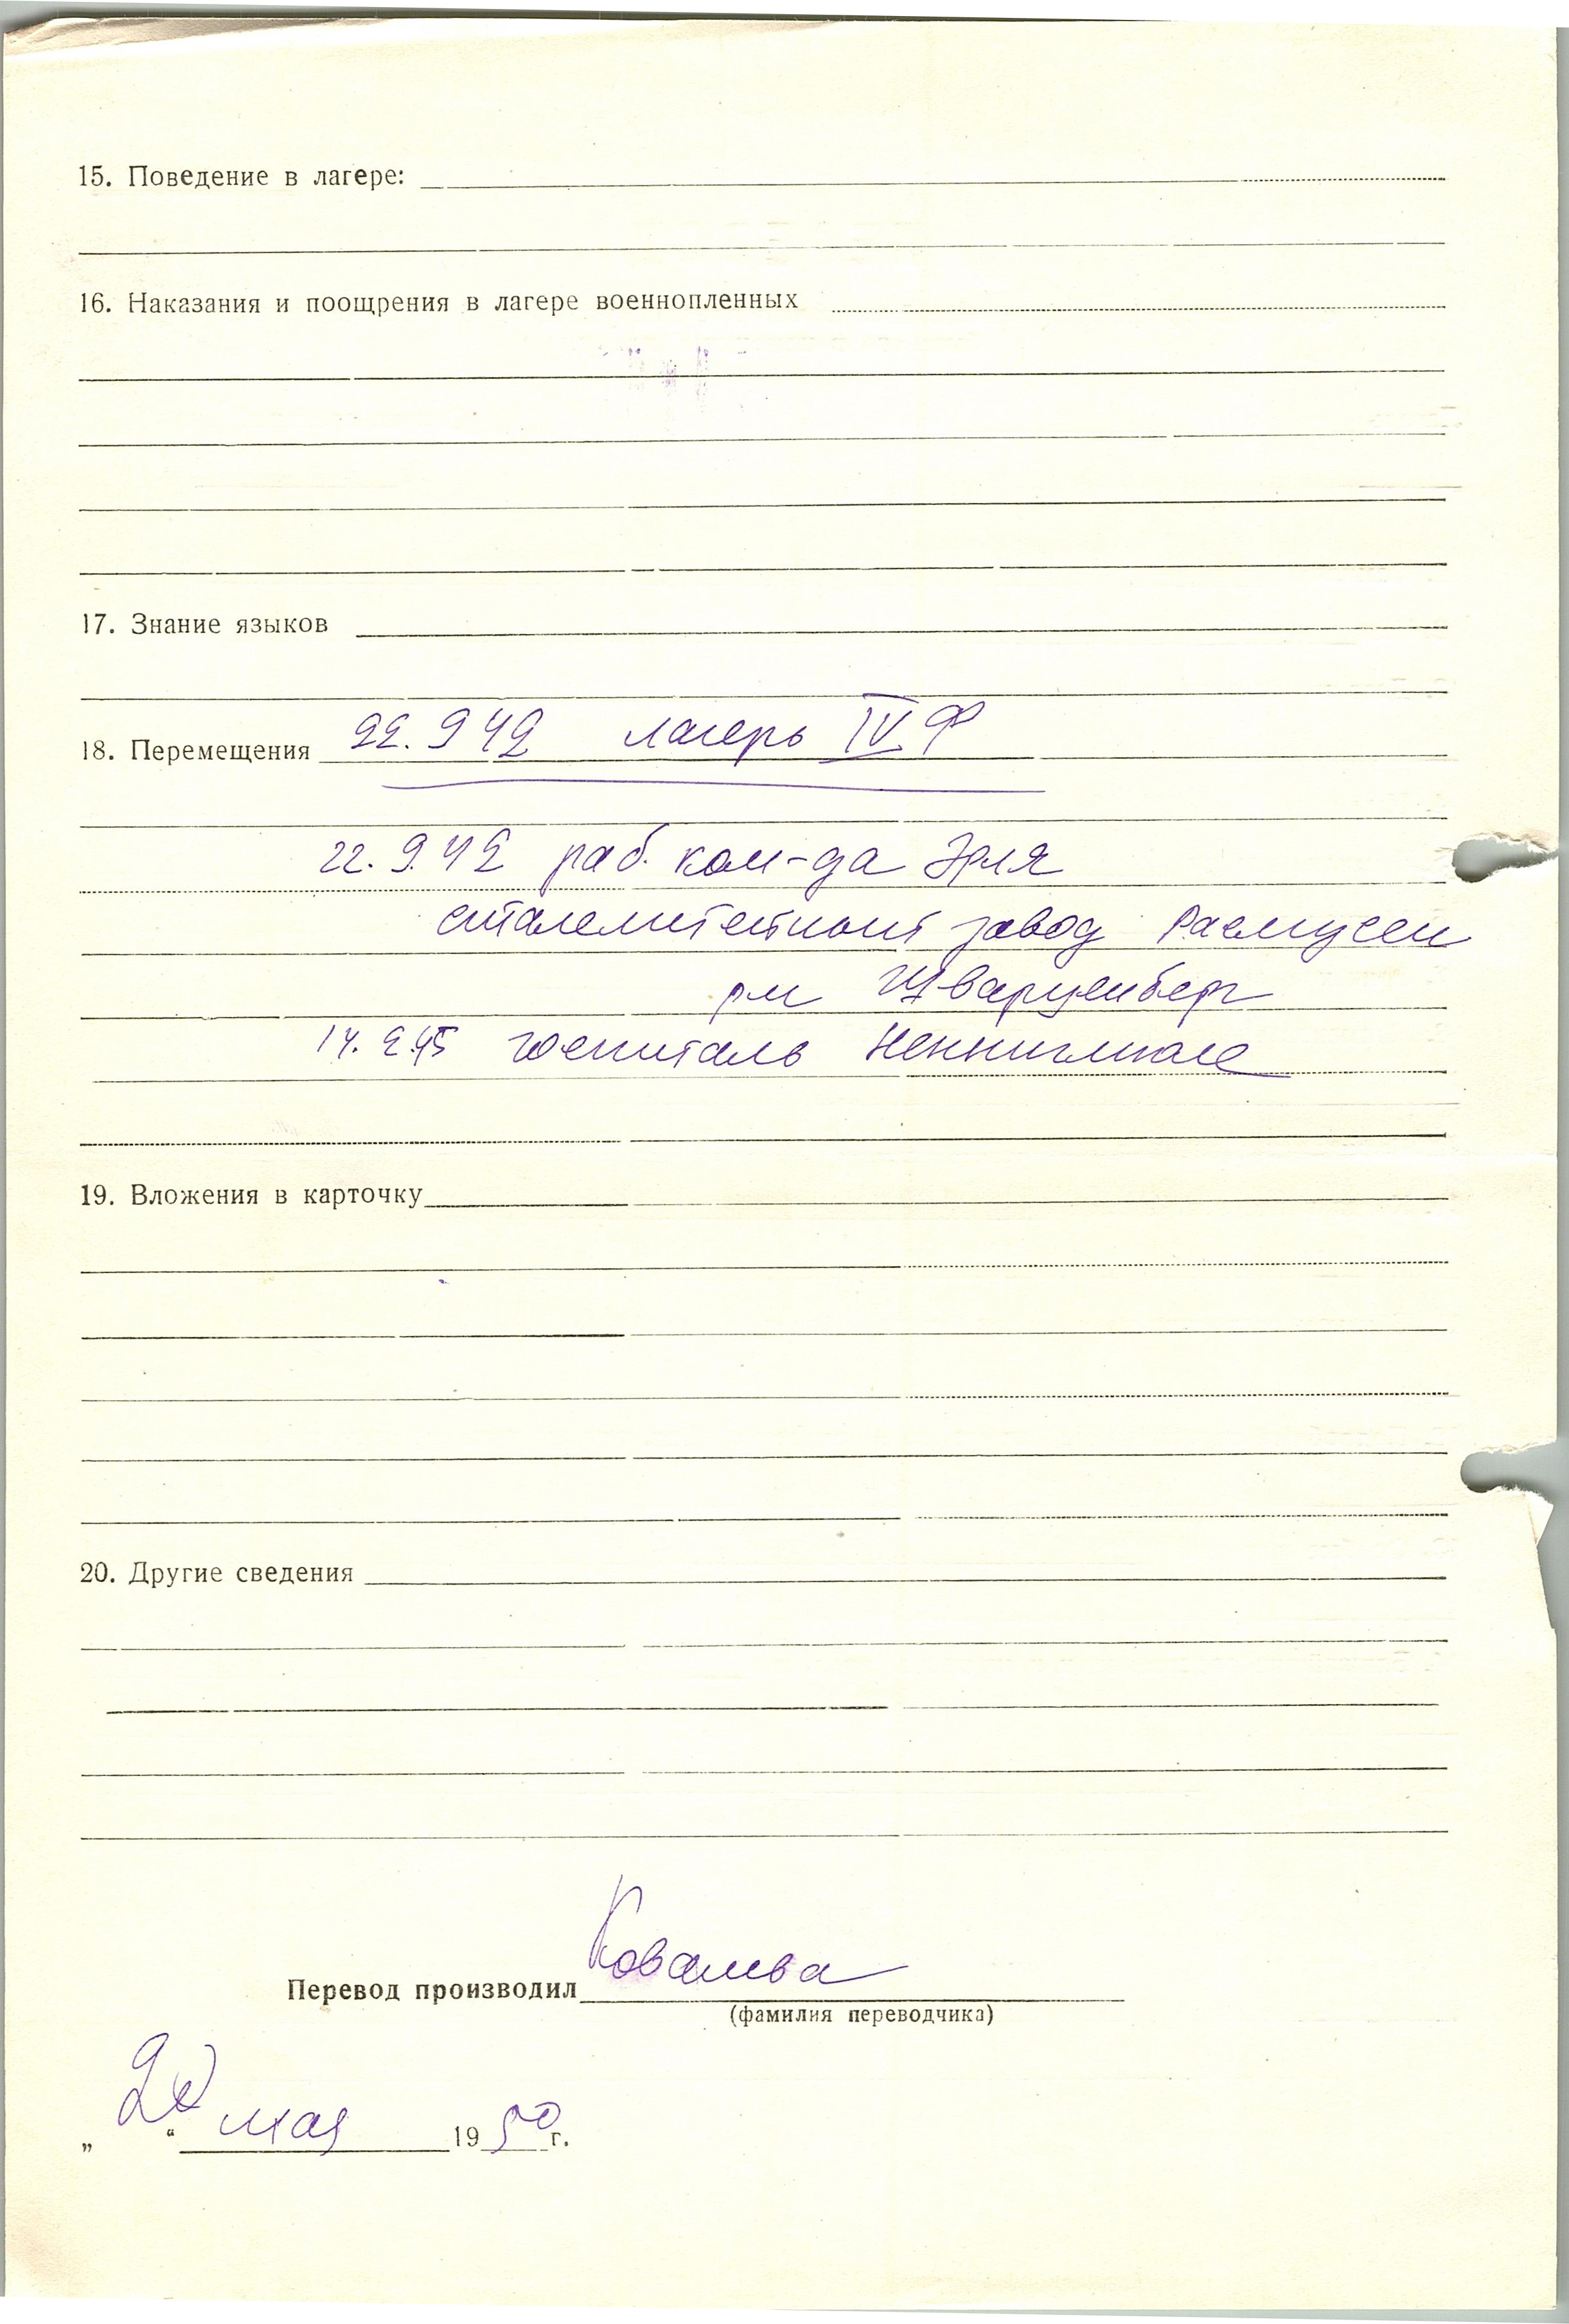 15. Поведение в лагере:
16. Наказания и поощрения в лагере военнопленных
17. Знание языков
18. Перемещения 22. 9 42 лагерь IV Ф
22. 9. 42 раб. ком-да Эрля
сталелитейный завод Расмусен
Шварценберг
14. 2.45 госпиталь
19. Вложения в карточку
20. Другие сведения
Перевод производил Ковалева
(фамилия переводчика)
„ “ мая 1950 г.